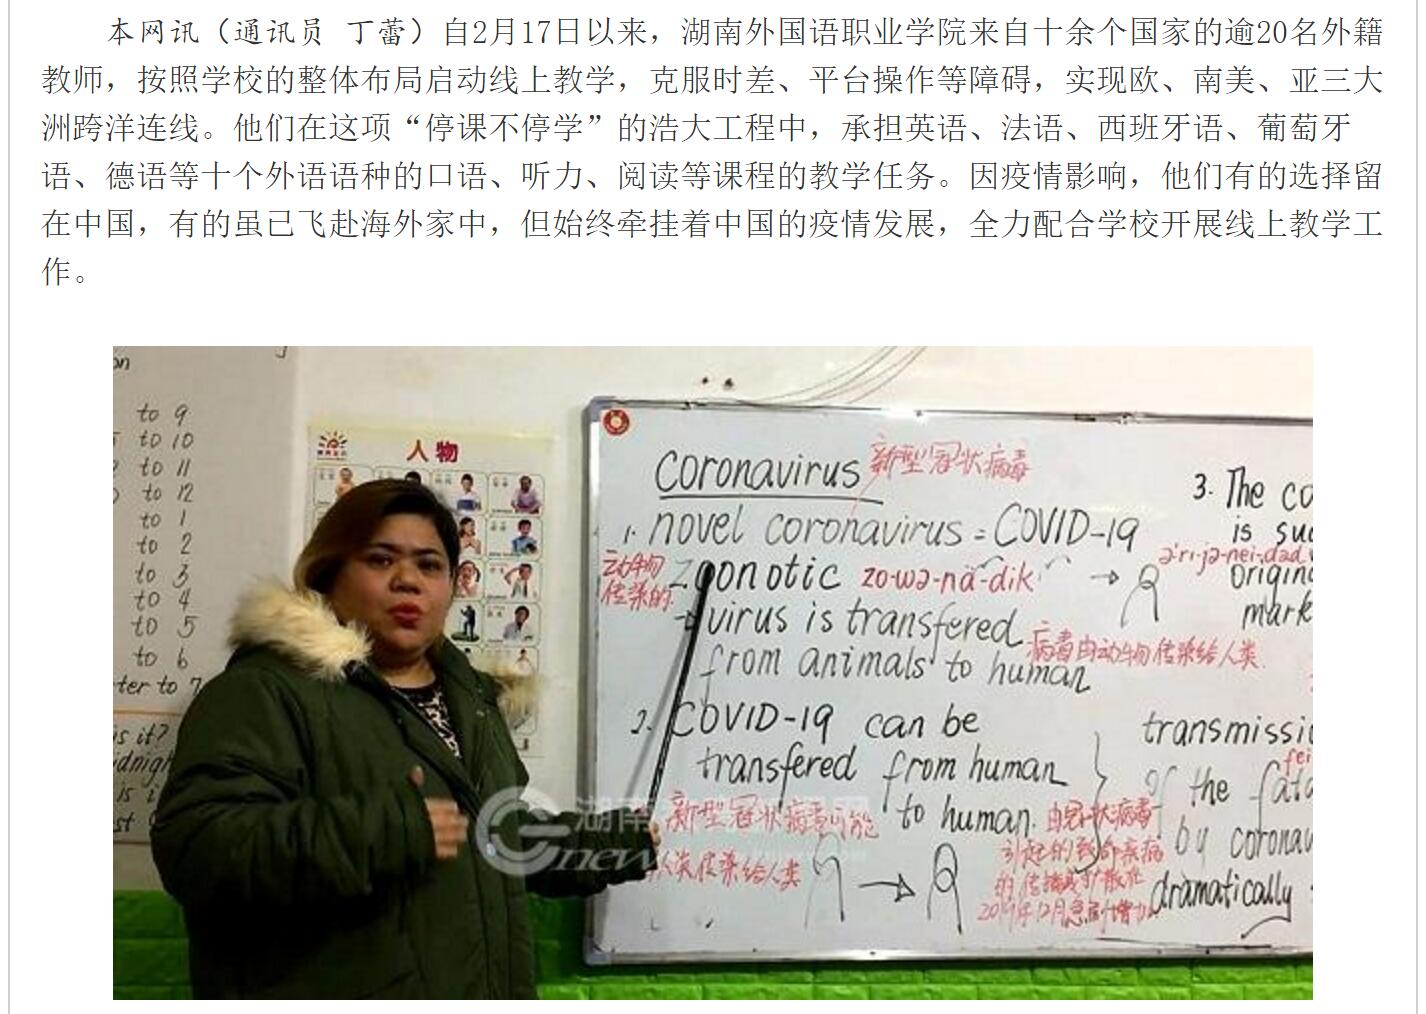 本网讯（通讯员 丁蕾）自2月17日以来，湖南外国语职业学院来自十余个国家的逾20名外籍
教师，按照学校的整体布局启动线上教学，克服时差、平台操作等障碍，实现欧、南美、亚三大
洲跨洋连线。他们在这项“停课不停学”的浩大工程中，承担英语、法语、西班牙语、葡萄牙
语、德语等十个外语语种的口语、听力、阅读等课程的教学任务。因疫情影响，他们有的选择留
在中国，有的虽已飞赴海外家中，但始终牵挂着中国的疫情发展，全力配合学校开展线上教学工
作。
to 9
to 10
to 11
to 12
to 1
to 2
to 3
to 4
to 5
to 6
ter to 7
is it?
人物
coronavirus 新型冠状病毒
1. novel coronavirus = COVID-19
动物
传染的
zoonotic zo-wə-nä-dik
virus is transfered
from animals to human
病毒由动物传染给人类.
2. COVID-19 can be
transfered from human
to human.
新型冠状病毒可能
人类传染给人类
由冠状病毒
引起的致命疾病
的传播或扩散在
2019年12月急剧增加
3. The co
is suc
ə'ri-jə-nei-dəd
origina
mark
transmissi
of the fata
by coronav
dramatically
湖南
news